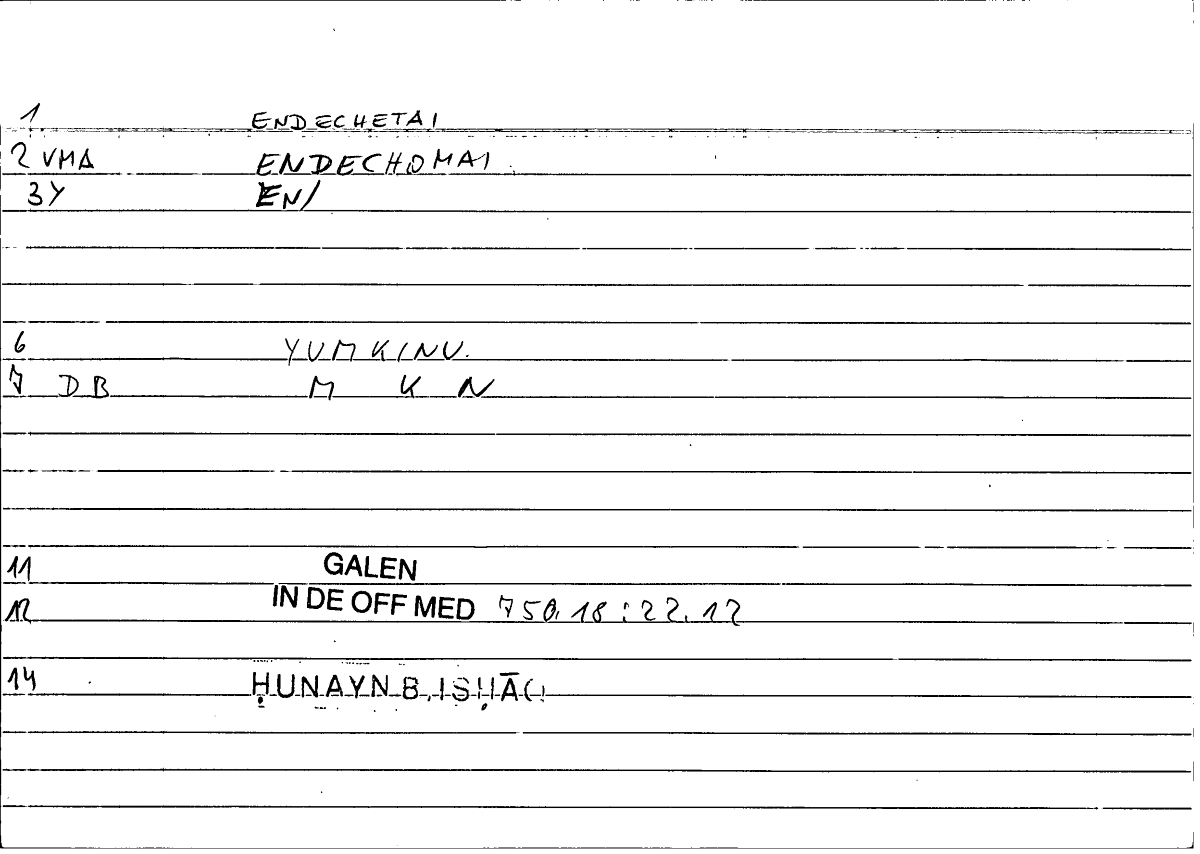 1 ENDECHETAI
2 VMA ENDECHOMAI
3Y EN/
6 YUMKINU.
7 DB M K N
11 GALEN
12 IN DE OFF MED 750.18:22.12
14 ḤUNAYN B. ISḤĀQ